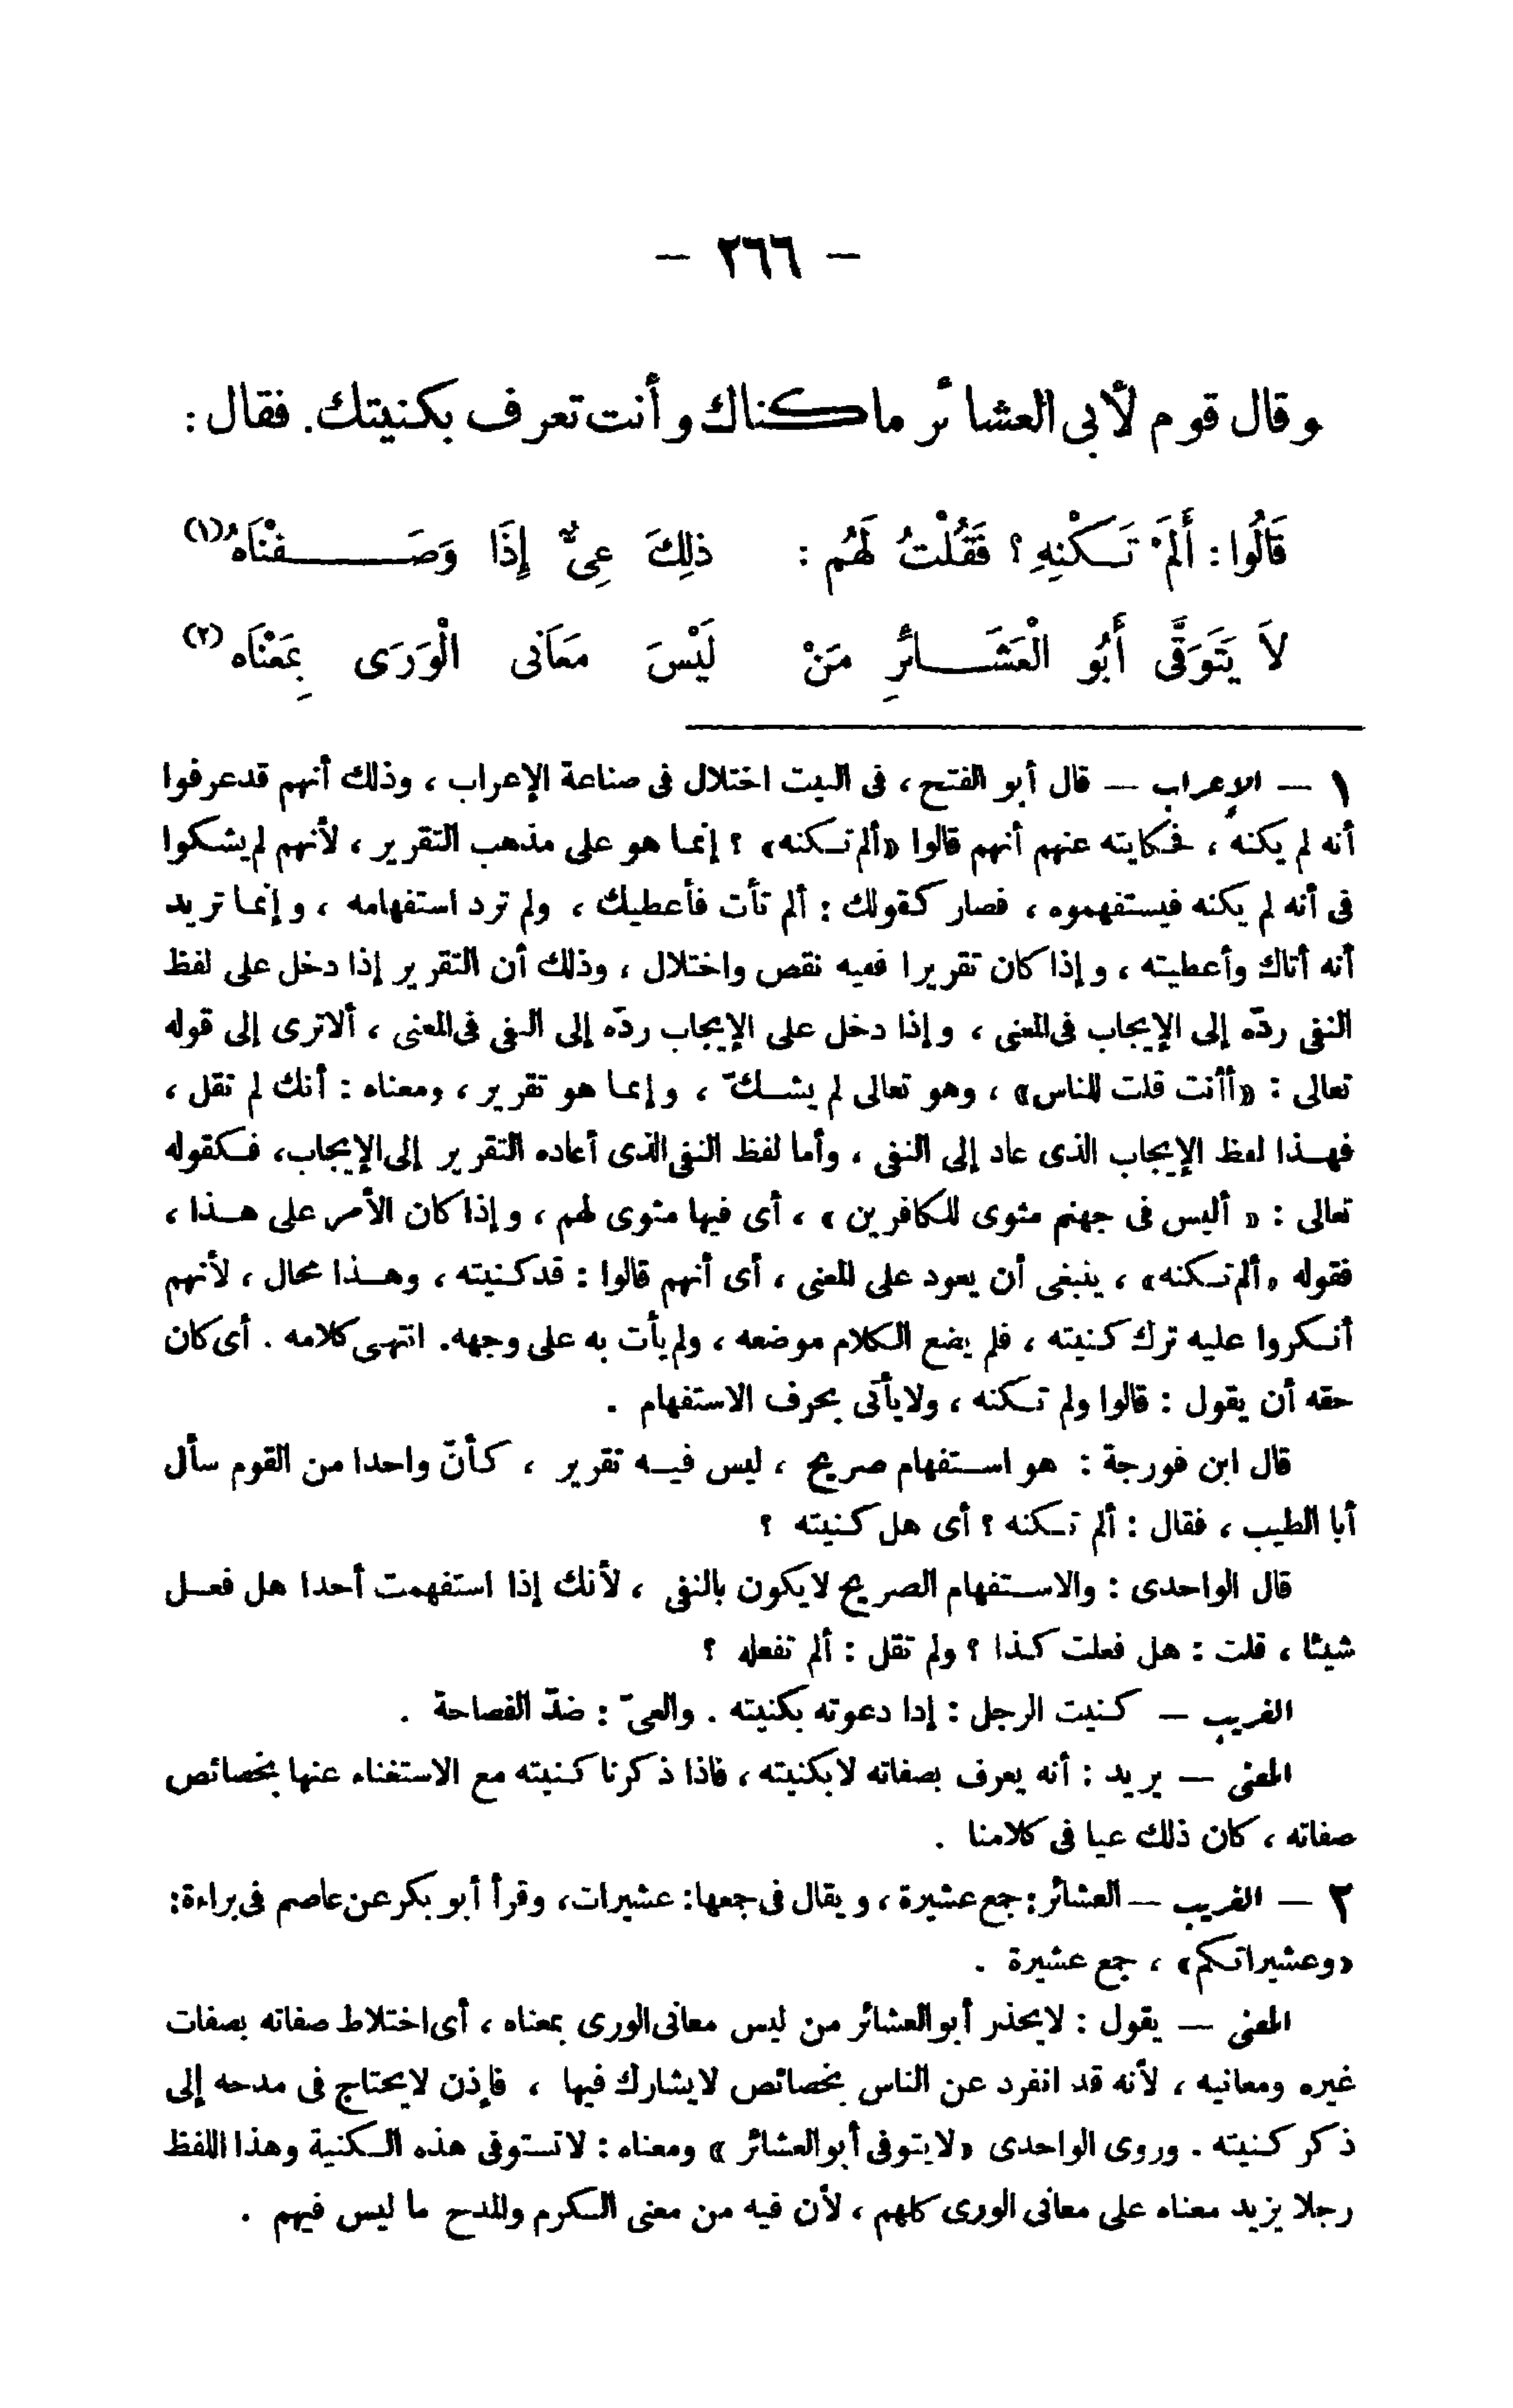 — ٢٦٦ —
وقال قوم لأبى العشائر ماكناك وأنت تعرف بكنيتك. فقال :
قَالُوا : أَلَمْ تَكْنِهِ ؟ فَقُلْتُ لَهُم : ذلِكَ عِىٌّ إِذَا وَصَفْنَاهُ(١)
لاَ يَتَوَقَّى أَبُو الْعَشَائرِ مَنْ لَيْسَ مَعَانى الْوَرَى بِمَعْنَاه (٢)
١ — الإعراب — قال أبو الفتح ، فى البيت اختلال فى صناعة الإعراب ، وذلك أنهم قدعرفوا
أنه لم يكنه ، فحكايته عنهم أنهم قالوا «ألم تكنه» ؟ إنما هو على مذهب التقرير ، لأنهم لم يشكوا
فى أنه لم يكنه فيستفهموه ، فصار كقولك : ألم تأت فأعطيك ، ولم ترد استفهامه ، وإنما تريد
أنه أتاك وأعطيته ، وإذا كان تقريرا ففيه نقص واختلال ، وذلك أن التقرير إذا دخل على لفظ
النفى ردّه إلى الإيجاب فى المعنى ، وإذا دخل على الإيجاب ردّه إلى النفى فى المعنى ، ألا ترى إلى قوله
تعالى : «أأنت قلت للناس» ، وهو تعالى لم يشكّ ، وإنما هو تقرير ، ومعناه : أنك لم تقل ،
فهذا لفظ الإيجاب الذى عاد إلى النفى ، وأما لفظ النفى الذى أعاده التقرير إلى الإيجاب، فكقوله
تعالى : « أليس فى جهنم مثوى للكافرين » ، أى فيها مثوى لهم ، وإذا كان الأمر على هذا ،
فقوله «ألم تكنه» ، ينبغى أن يعود على المعنى ، أى أنهم قالوا : قد كنيته ، وهذا محال ، لأنهم
أنكروا عليه ترك كنيته ، فلم يضع الكلام موضعه ، ولم يأت به على وجهه. انتهى كلامه . أى كان
حقه أن يقول : قالوا ولم تكنه ، ولا يأتى بحرف الاستفهام .
قال ابن فورجة : هو استفهام صريح ، ليس فيه تقرير ، كأنّ واحدا من القوم سأل
أبا الطيب ، فقال : ألم تكنه ؟ أى هل كنيته ؟
قال الواحدى : والاستفهام الصريح لا يكون بالنفى ، لأنك إذا استفهمت أحدا هل فعل
شيئا ، قلت : هل فعلت كذا ؟ ولم تقل : ألم تفعله ؟
الغريب — كنيت الرجل : إدا دعوته بكنيته . والعىّ : ضدّ الفصاحة .
المعنى — يريد : أنه يعرف بصفاته لا بكنيته ، فاذا ذكرنا كنيته مع الاستغناء عنها بخصائص
صفاته ، كان ذلك عيا فى كلامنا .
٢ — الغريب — العشائر : جمع عشيرة ، ويقال فى جمعها: عشيرات، وقرأ أبو بكر عن عاصم فى براءة:
«وعشيراتكم» ، جمع عشيرة .
المعنى — يقول : لا يحذر أبو العشائر من ليس معانى الورى بمعناه ، أى اختلاط صفاته بصفات
غيره ومعانيه ، لأنه قد انفرد عن الناس بخصائص لا يشارك فيها ، فإذن لا يحتاج فى مدحه إلى
ذكر كنيته . وروى الواحدى «لا يتوفى أبو العشائر » ومعناه : لا تستوفى هذه الكنية وهذا اللفظ
رجلا يزيد معناه على معانى الورى كلهم ، لأن فيه من معنى الكرم والمدح ما ليس فيهم .